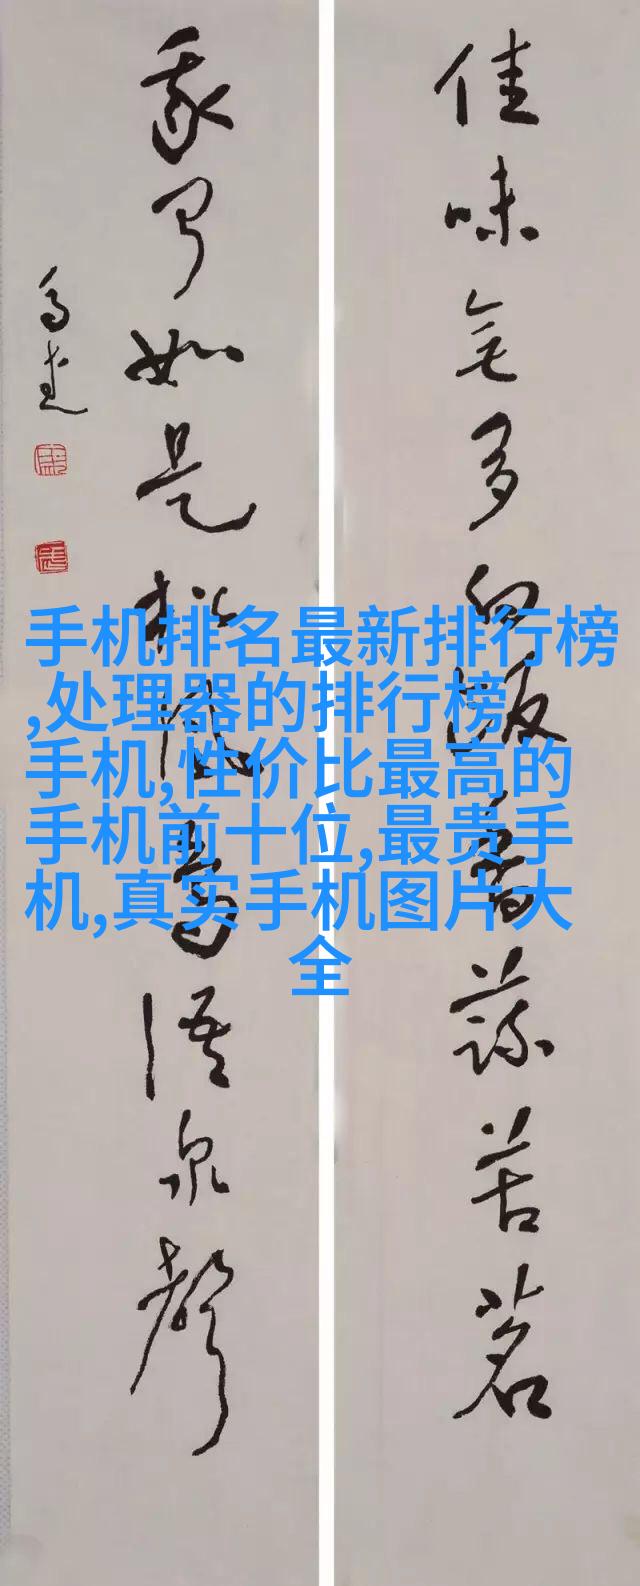 佳味無多白飯香蔬苦茗
我聞如是松鳥語泉聲
手机排名最新排行榜
,处理器的排行榜
手机,性价比最高的
手机前十位,最贵手
机,真实手机图片大
全